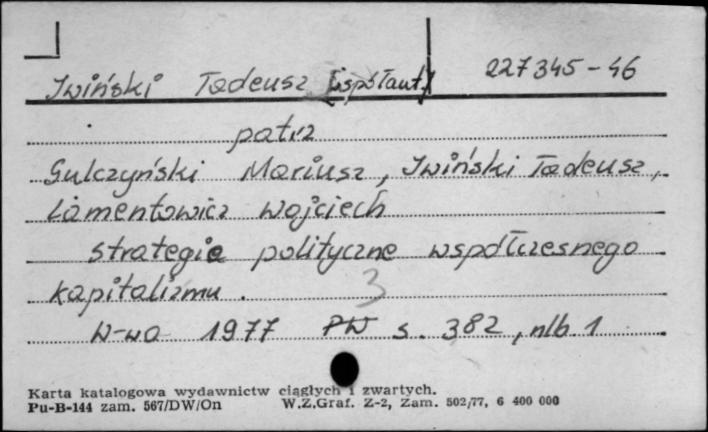 Iwiński Tadeusz [współaut.] 227345-46
patrz
Gulczyński Mariusz, Iwiński Tadeusz,
Lamentowicz Wojciech
Strategie polityczne współczesnego
kapitalizmu. 3
W-wa 1977 PW s. 382, nlb 1
Karta katalogowa wydawnictw ciągłych i zwartych.
Pu-B-144 zam. 567/DW/On W.Z.Graf. Z-2, Zam. 502/77, 6 400 000